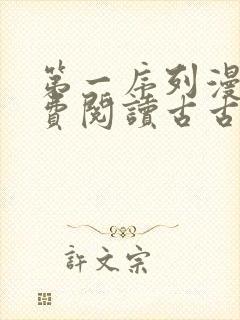 第一序列漫
費閱讀古古
許文宗